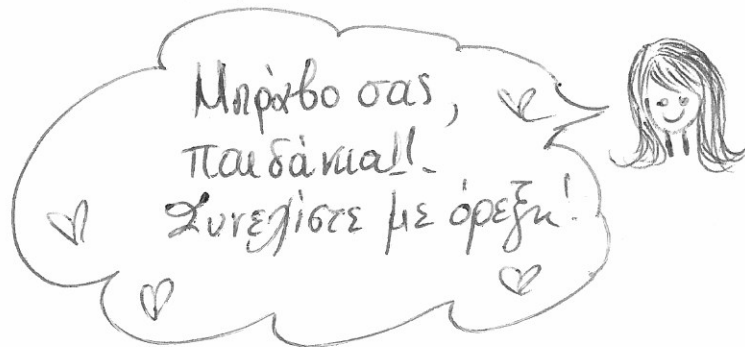 Μπράβο σας,
παιδάκια!!
Συνεχίστε με όρεξη!